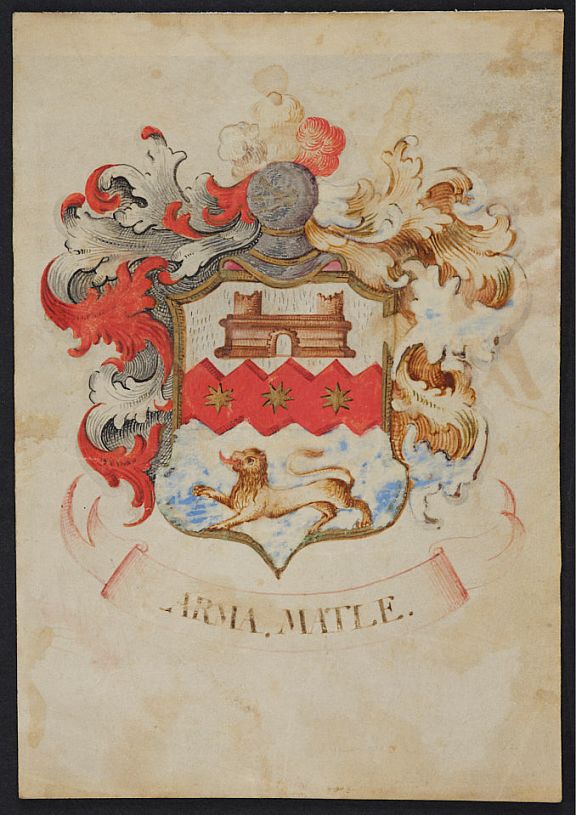 ARMA. MATLE.